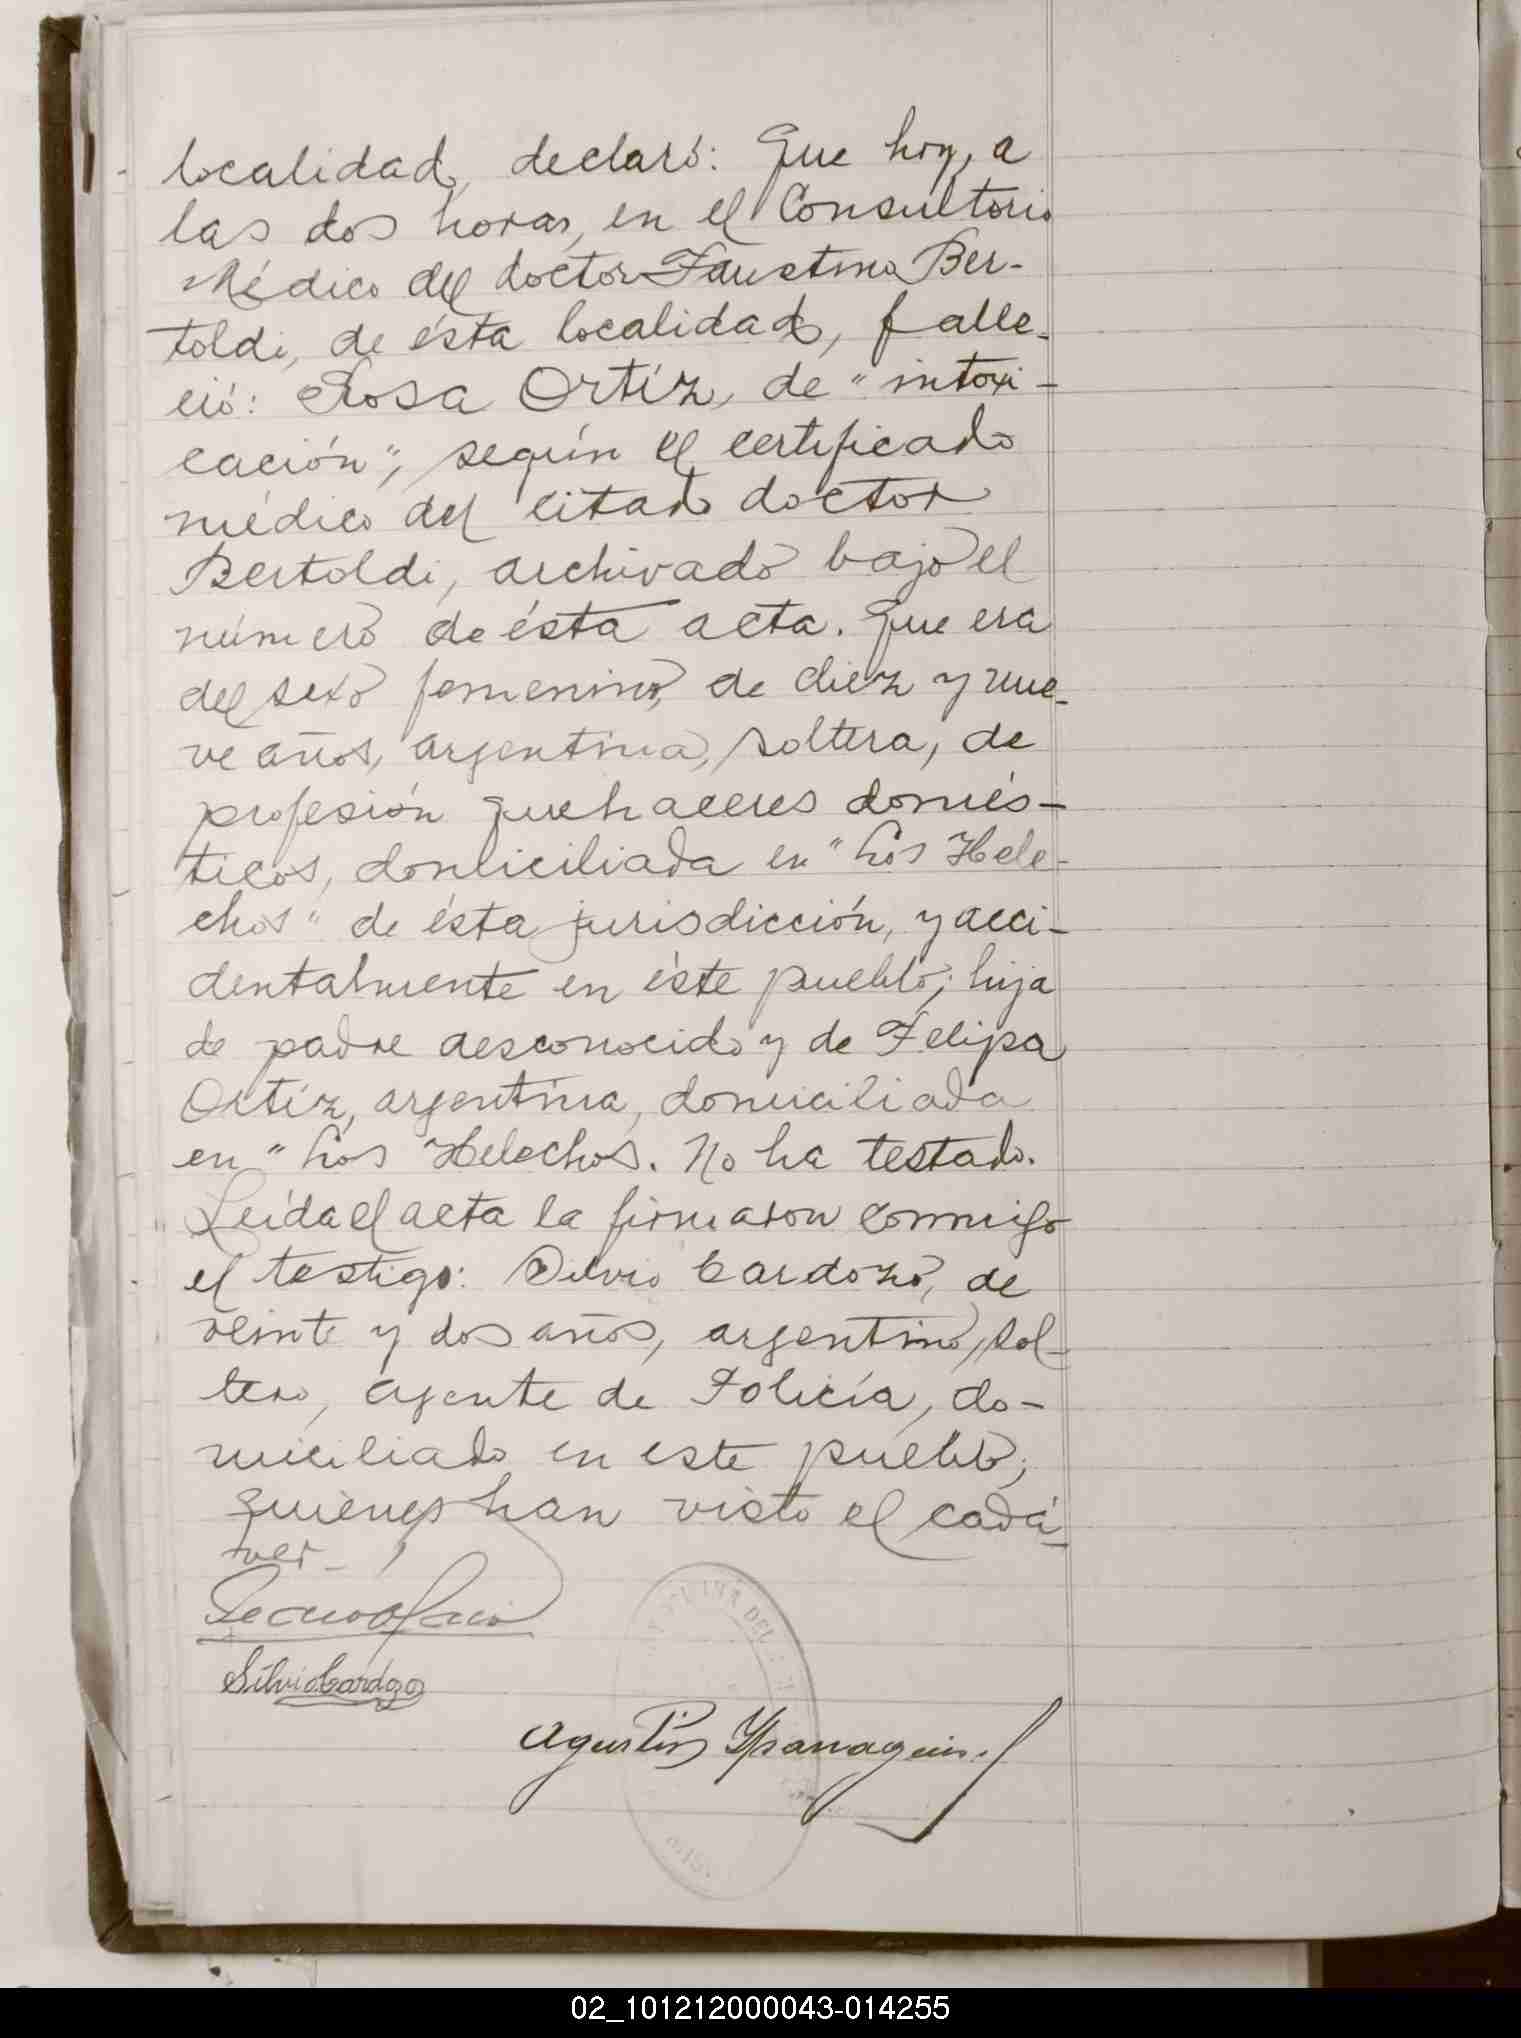 localidad, declaró: Que hoy, a
las dos horas, en el Consultorio
Médico del doctor Faustino Ber-
toldi, de ésta localidad, falle-
ció: Rosa Ortíz, de "intoxi-
cación", según el certificado
médico del citado doctor
Bertoldi, archivado bajo el
número de ésta acta. Que era
del sexo femenino, de diez y nue-
ve años, argentina, soltera, de
profesión quehaceres domés-
ticos, domiciliada en "Los Hele-
chos" de ésta jurisdicción, y acci-
dentalmente en éste pueblo; hija
de padre desconocido y de Felipa
Ortíz, argentina, domiciliada
en "Los Helechos. No ha testado.
Leída el acta la firmaron conmigo
el testigo: Silvio Cardozo, de
veinte y dos años, argentino, sol-
tero, agente de Policía, do-
miciliado en este pueblo;
quienes han visto el cadá-
ver-
Silvio Cardozo
Agustín
02_101212000043-014255